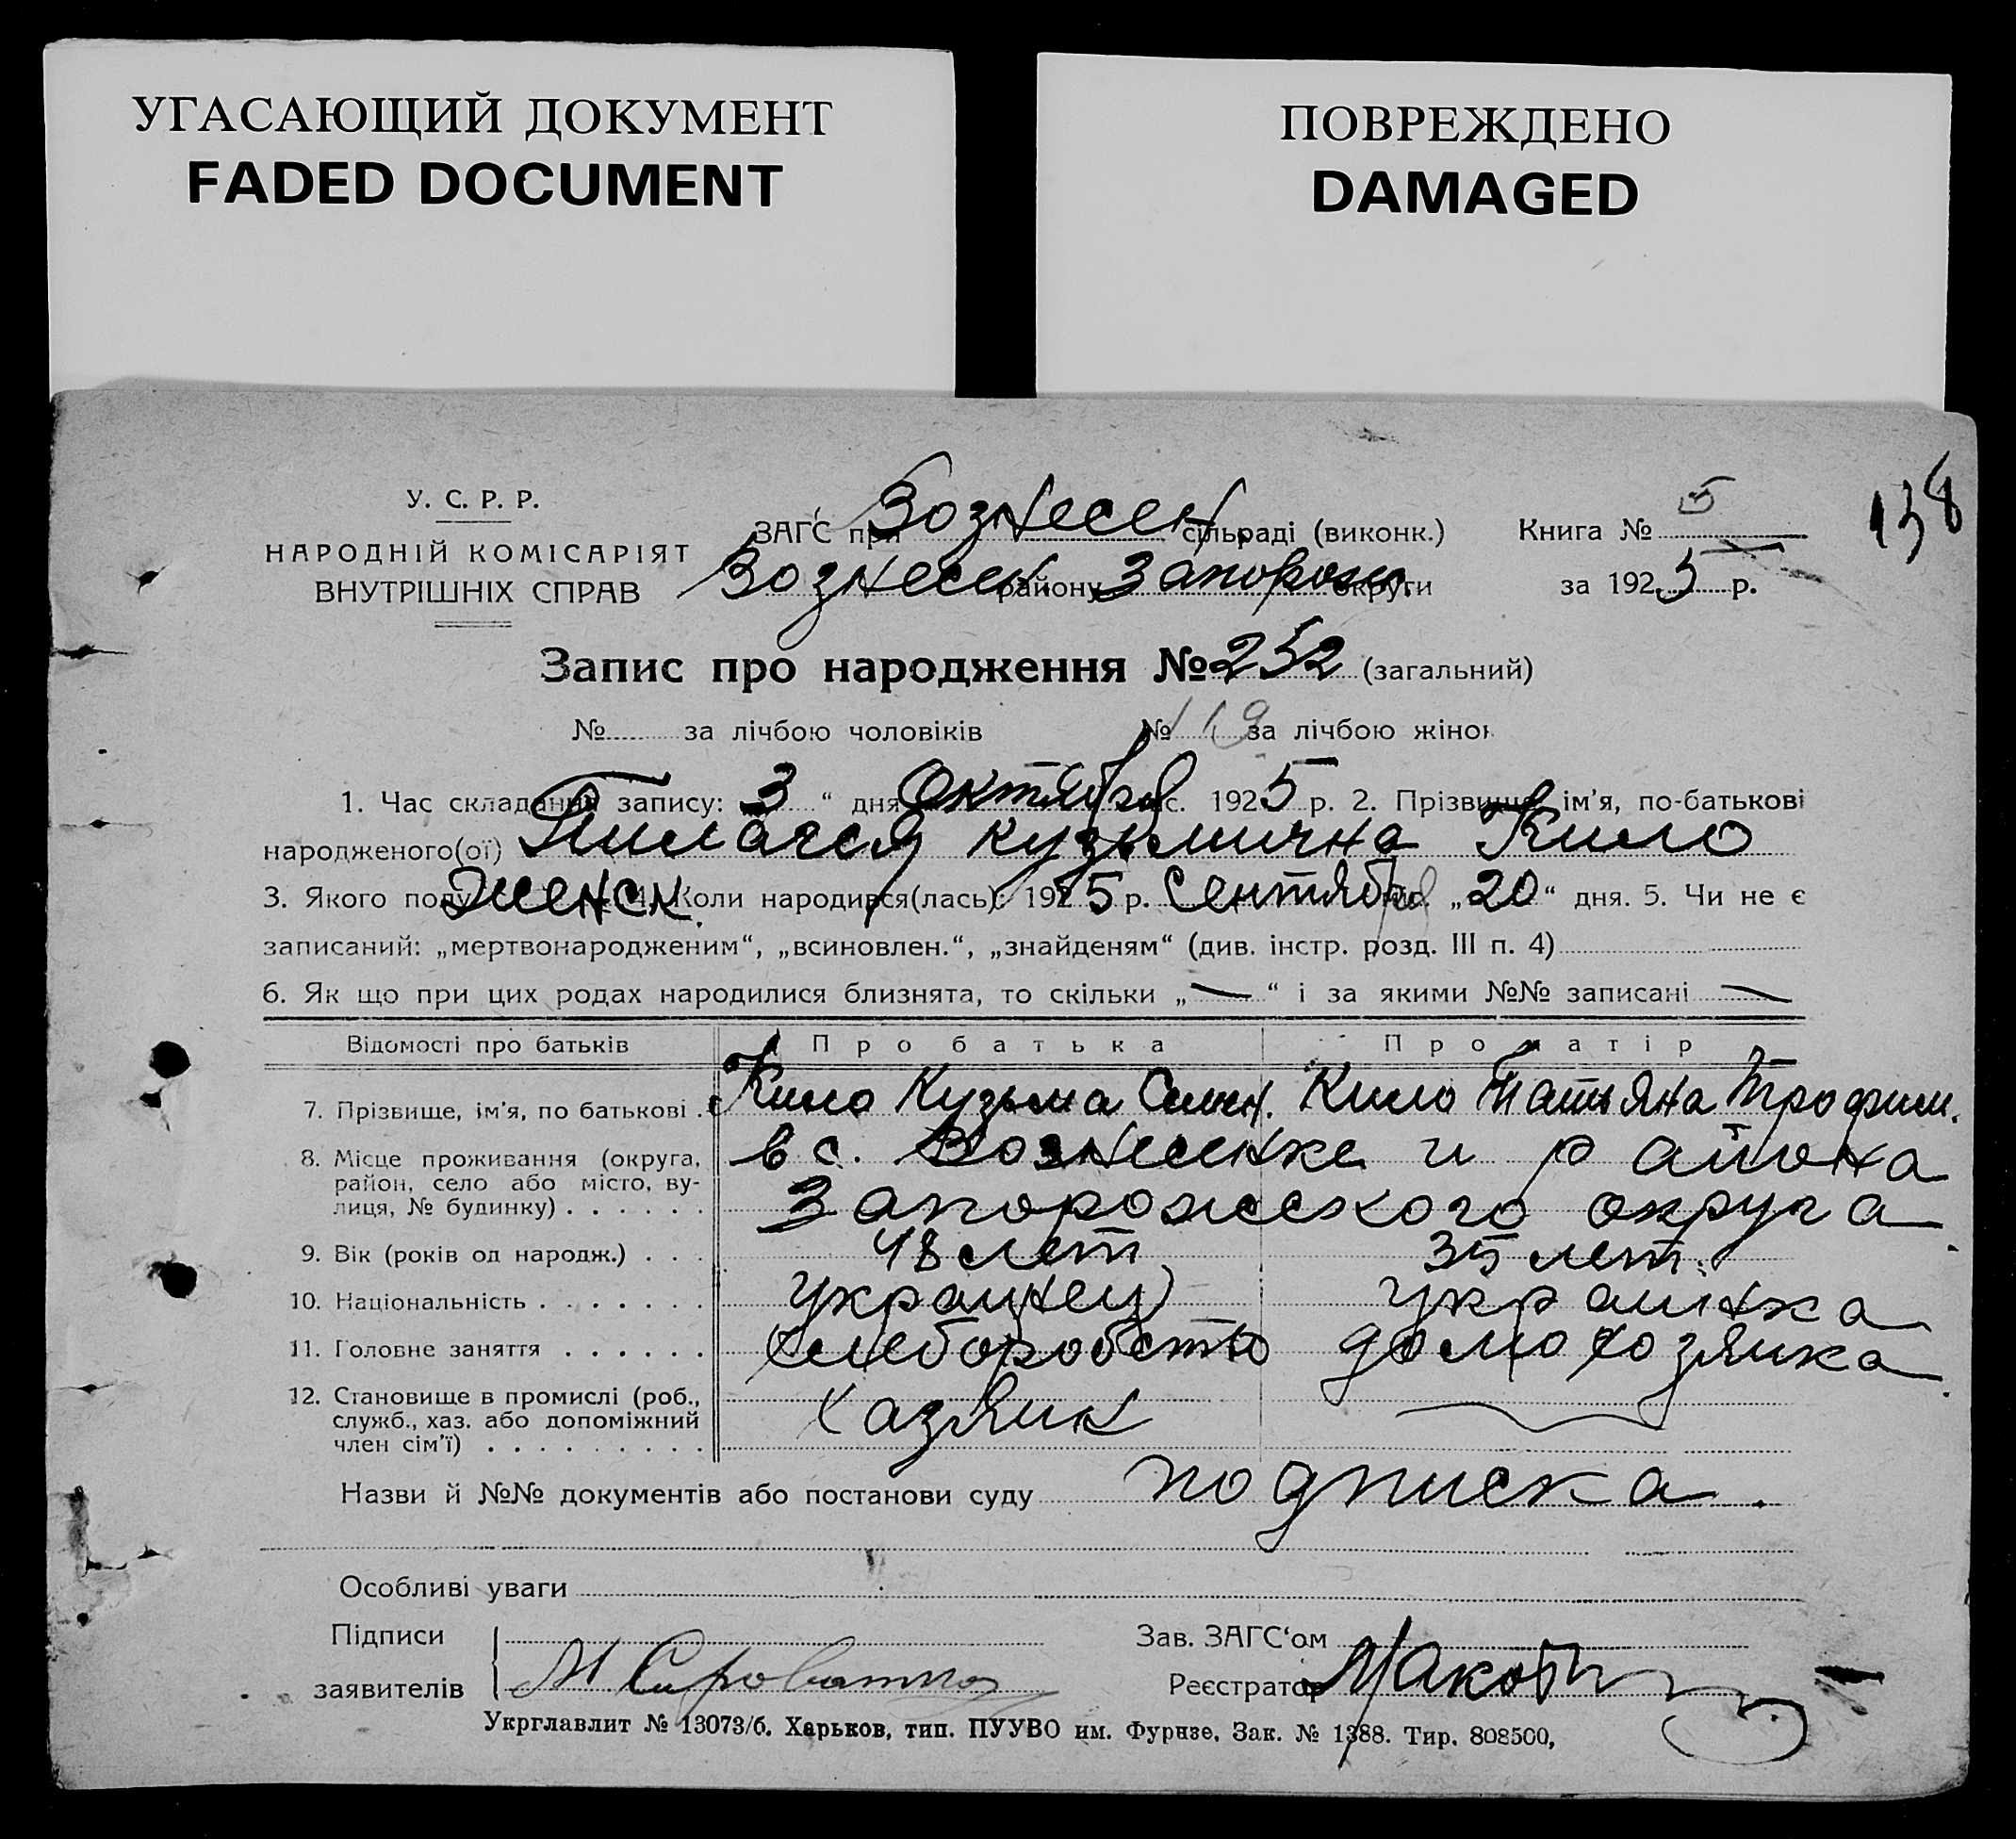 УГАСАЮЩИЙ ДОКУМЕНТ
FADED DOCUMENT
ПОВРЕЖДЕНО
DAMAGED
138
У. С. Р. Р.
НАРОДНІЙ КОМІСАРІЯТ
ВНУТРІШНІХ СПРАВ
ЗАГС при Вознесен сільраді (виконк.)
Вознесен району Запорож округи
Книга № 5
за 1925 р.
Запис про народження № 252 (загальний)
№ за лічбою чоловіків № 119 за лічбою жінок
1. Час складання запису: 3 “ дня Октября с. 1925 р. 2. Прізвище, ім’я, по-батькові
народженого(ої) Кузьмична Кило
3. Якого полу Женск. 4. Коли народився(лась): 1925 р. Сентября „ 20 “ дня. 5. Чи не є
записаний: „мертвонародженим“, „всиновлен.“, „знайденям“ (див. інстр. розд. III п. 4)
6. Як що при цих родах народилися близнята, то скільки „ — “ і за якими №№ записані —
Відомості про батьків Про батька Про матір
7. Прізвище, ім’я, по батькові . Кило Кузьма Семен. Кило Татьяна Трофим.
8. Місце проживання (округа,
район, село або місто, ву-
лиця, № будинку) . . . . . .
в с. Вознесенке и района
Запорожского округа
9. Вік (років од народж.) . . . 48 лет 35 лет.
10. Національність . . . . . . . украинец украинка
11. Головне заняття . . . . . . хлеборобство домохозяйка
12. Становище в промислі (роб.,
служб., хаз. або допоміжний
член сім’ї) . . . . . . . . .
хазяин —
Назви й №№ документів або постанови суду подписка.
Особливі уваги
Підписи
заявителів
Зав. ЗАГС‘ом
Реєстратор
Укрглавлит № 13073/б. Харьков, тип. ПУУВО им. Фурнзе. Зак. № 1388. Тир. 808500,